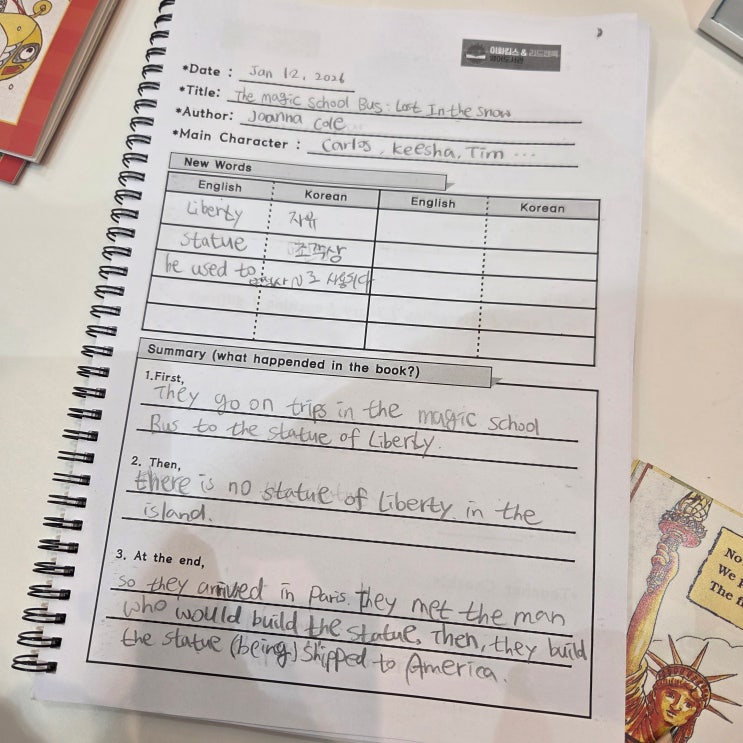 이화킹스 & 리드앤톡
영어도서관
*Date : Jan 12, 2026
*Title: The magic School Bus : Lost In the Snow
*Author: Joanna Cole
*Main Character : Carlos, Keesha, Tim ...
New Words
English Korean English Korean
Liberty 자유
statue 조각상
be used to ~로 사용되다
Summary (what happended in the book?)
1.First,
They go on trips in the magic school
Bus to the statue of Liberty.
2. Then,
there is no statue of Liberty in the
island.
3. At the end,
so they arrived in Paris. They met the man
who would build the statue. Then, they build
the statue (being) shipped to America.
No
We
The